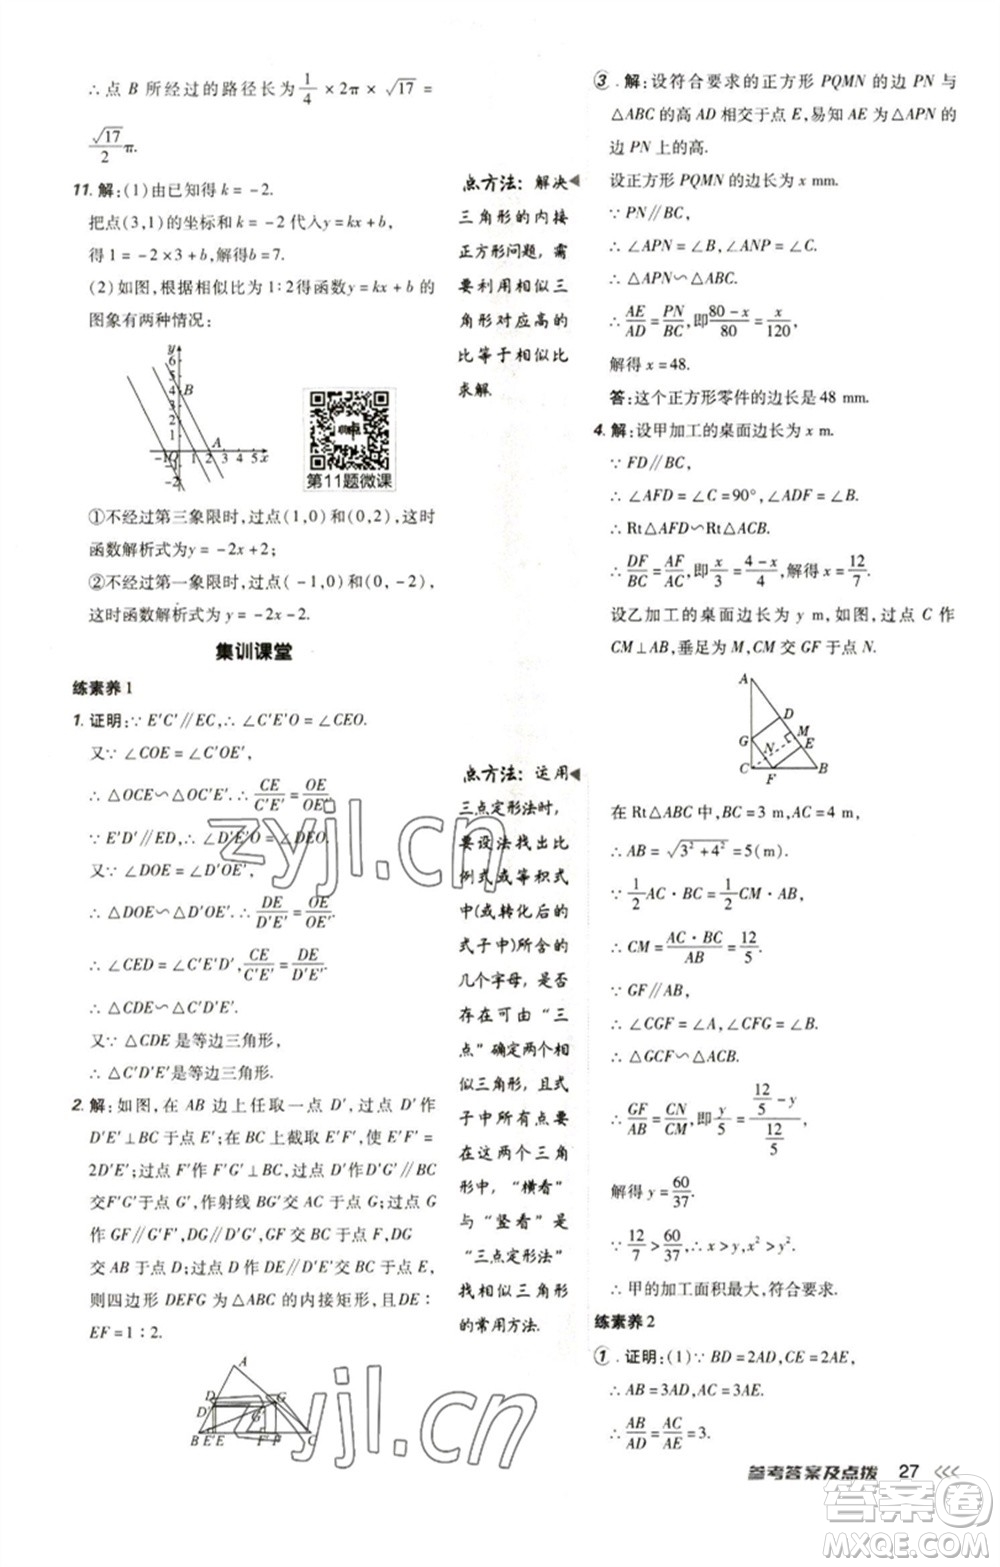 ∴点 B 所经过的路径长为 1/4 × 2π × √17 =
√17/2 π.
11. 解:(1)由已知得 k = -2.
把点(3,1)的坐标和 k = -2 代入 y = kx + b,
得 1 = -2×3 + b,解得 b = 7.
(2)如图,根据相似比为 1∶2得函数 y = kx + b 的
图象有两种情况:
y
6
5
4 B
3
2
1 A
-1 O 1 2 3 4 5 x
-2
第11题微课
①不经过第三象限时,过点(1,0)和(0,2),这时
函数解析式为 y = -2x + 2;
②不经过第一象限时,过点(-1,0)和(0,-2),
这时函数解析式为 y = -2x - 2.
集训课堂
练素养 1
1. 证明:∵ E'C'∥EC,∴ ∠C'E'O = ∠CEO.
又∵ ∠COE = ∠C'OE',
∴ △OCE∽△OC'E'.∴ CE/C'E' = OE/OE'.
∵ E'D'∥ED,∴ ∠D'E'O = ∠DEO.
又∵ ∠DOE = ∠D'OE',
∴ △DOE∽△D'OE'.∴ DE/D'E' = OE/OE'.
∴ ∠CED = ∠C'E'D',CE/C'E' = DE/D'E'.
∴ △CDE∽△C'D'E'.
又∵ △CDE 是等边三角形,
∴ △C'D'E'是等边三角形.
2. 解:如图,在 AB 边上任取一点 D',过点 D'作
D'E'⊥BC 于点 E';在 BC 上截取 E'F',使 E'F' =
2D'E';过点 F'作 F'G'⊥BC,过点 D'作 D'G'∥BC
交F'G'于点 G',作射线 BG'交 AC 于点 G;过点 G
作 GF∥G'F',DG∥D'G',GF 交 BC 于点 F,DG
交 AB 于点 D;过点 D 作 DE∥D'E'交 BC 于点 E,
则四边形 DEFG 为△ABC 的内接矩形,且 DE∶
EF = 1∶2.
A
D G
D' G'
B E' E F' F C
点方法:解决
三角形的内接
正方形问题,需
要利用相似三
角形对应高的
比等于相似比
求解.
点方法:运用
三点定形法时,
要设法找出比
例式或等积式
中(或转化后的
式子中)所含的
几个字母,是否
存在可由“三
点”确定两个相
似三角形,且式
子中所有点要
在这两个三角
形中,“横看”
与“竖看”是
“三点定形法”
找相似三角形
的常用方法.
3. 解:设符合要求的正方形 PQMN 的边 PN 与
△ABC 的高 AD 相交于点 E,易知 AE 为△APN 的
边 PN 上的高.
设正方形 PQMN 的边长为 x mm.
∵ PN∥BC,
∴ ∠APN = ∠B,∠ANP = ∠C.
∴ △APN∽△ABC.
∴ AE/AD = PN/BC,即 (80 - x)/80 = x/120,
解得 x = 48.
答:这个正方形零件的边长是 48 mm.
4. 解:设甲加工的桌面边长为 x m.
∵ FD∥BC,
∴ ∠AFD = ∠C = 90°,∠ADF = ∠B.
∴ Rt△AFD∽Rt△ACB.
∴ DF/BC = AF/AC,即 x/3 = (4 - x)/4,解得 x = 12/7.
设乙加工的桌面边长为 y m,如图,过点 C 作
CM⊥AB,垂足为 M,CM 交 GF 于点 N.
A
D
G N M
E
C F B
在 Rt△ABC 中,BC = 3 m,AC = 4 m,
∴ AB = √(3² + 4²) = 5(m).
∵ 1/2 AC · BC = 1/2 CM · AB,
∴ CM = AC · BC/AB = 12/5.
∵ GF∥AB,
∴ ∠CGF = ∠A,∠CFG = ∠B.
∴ △GCF∽△ACB.
∴ GF/AB = CN/CM,即 y/5 = (12/5 - y)/(12/5),
解得 y = 60/37.
∵ 12/7 > 60/37,∴ x > y,x² > y².
∴ 甲的加工面积最大,符合要求.
练素养 2
1. 证明:(1)∵ BD = 2AD,CE = 2AE,
∴ AB = 3AD,AC = 3AE.
∴ AB/AD = AC/AE = 3.
参考答案及点拨 27
zyjl.cn
zyjl.cn
答案圈
MXQE.COM